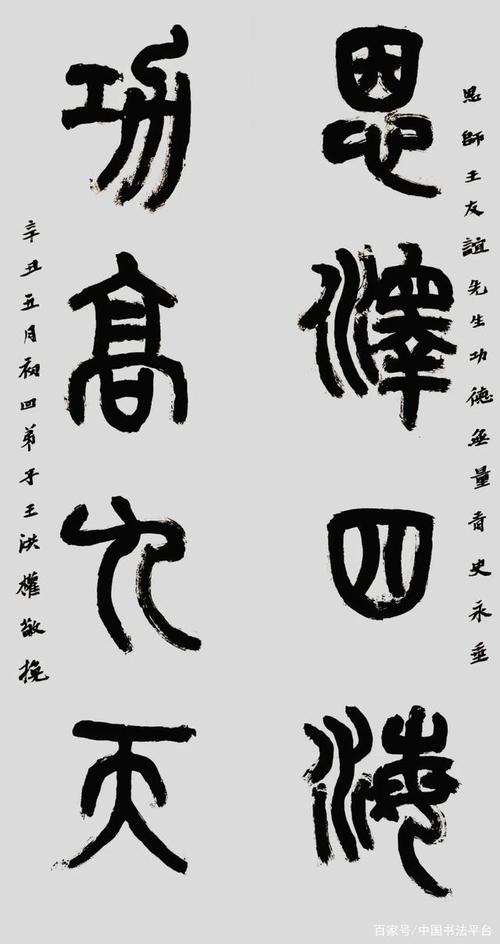 恩師王友誼先生功德無量青史永垂
恩澤四海
功高九天
辛丑五月初四弟子王洪權敬挽
百家号/中国书法平台